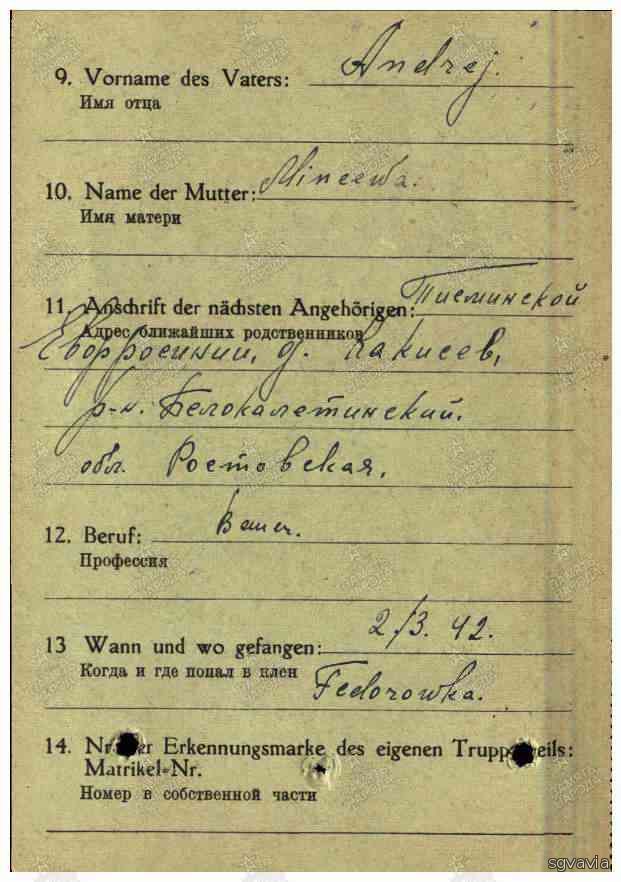 9. Vorname des Vaters: Andrej.
Имя отца
10. Name der Mutter: Mineewa.
Имя матери
11. Anschrift der nächsten Angehörigen: Тисминской
Адрес ближайших родственников
Евфросинии, д. Какисев,
р-н. Белокалетинский.
обл. Ростовская.
12. Beruf: Bauer.
Профессия
2/3. 42.
13 Wann und wo gefangen:
Когда и где попал в плен
Fedorowka.
14. Erkennungsmarke des eigenen
Matrikel-Nr.
Номер в собственной части
sgvavia